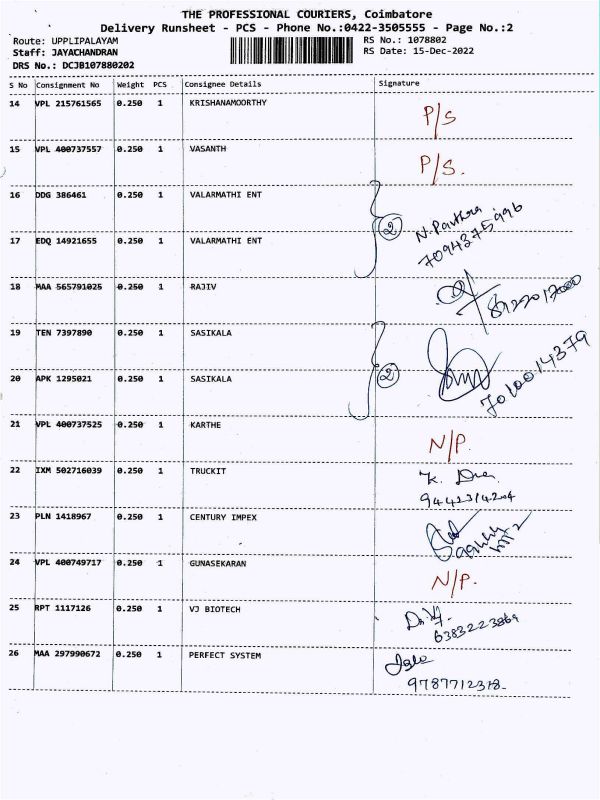 THE PROFESSIONAL COURIERS, Coimbatore
Delivery Runsheet - PCS - Phone No.:0422-3505555 - Page No.:2
Route: UPPLIPALAYAM RS No.: 1078802
Staff: JAYACHANDRAN RS Date: 15-Dec-2022
DRS No.: DCJB107880202
S No Consignment No Weight PCS Consignee Details Signature
14 VPL 215761565 0.250 1 KRISHANAMOORTHY P/S
15 VPL 400737557 0.250 1 VASANTH P/S.
16 DDG 386461 0.250 1 VALARMATHI ENT
2 N. Pavithra
7094375996
17 EDQ 14921655 0.250 1 VALARMATHI ENT
18 MAA 565791025 0.250 1 RAJIV
19 TEN 7397890 0.250 1 SASIKALA
2 7010014379
20 APK 1295021 0.250 1 SASIKALA
21 VPL 400737525 0.250 1 KARTHE N/P.
22 IXM 502716039 0.250 1 TRUCKIT
9442314204
23 PLN 1418967 0.250 1 CENTURY IMPEX
24 VPL 400749717 0.250 1 GUNASEKARAN N/P.
25 RPT 1117126 0.250 1 VJ BIOTECH
6383223869
26 MAA 297990672 0.250 1 PERFECT SYSTEM
9787712318-